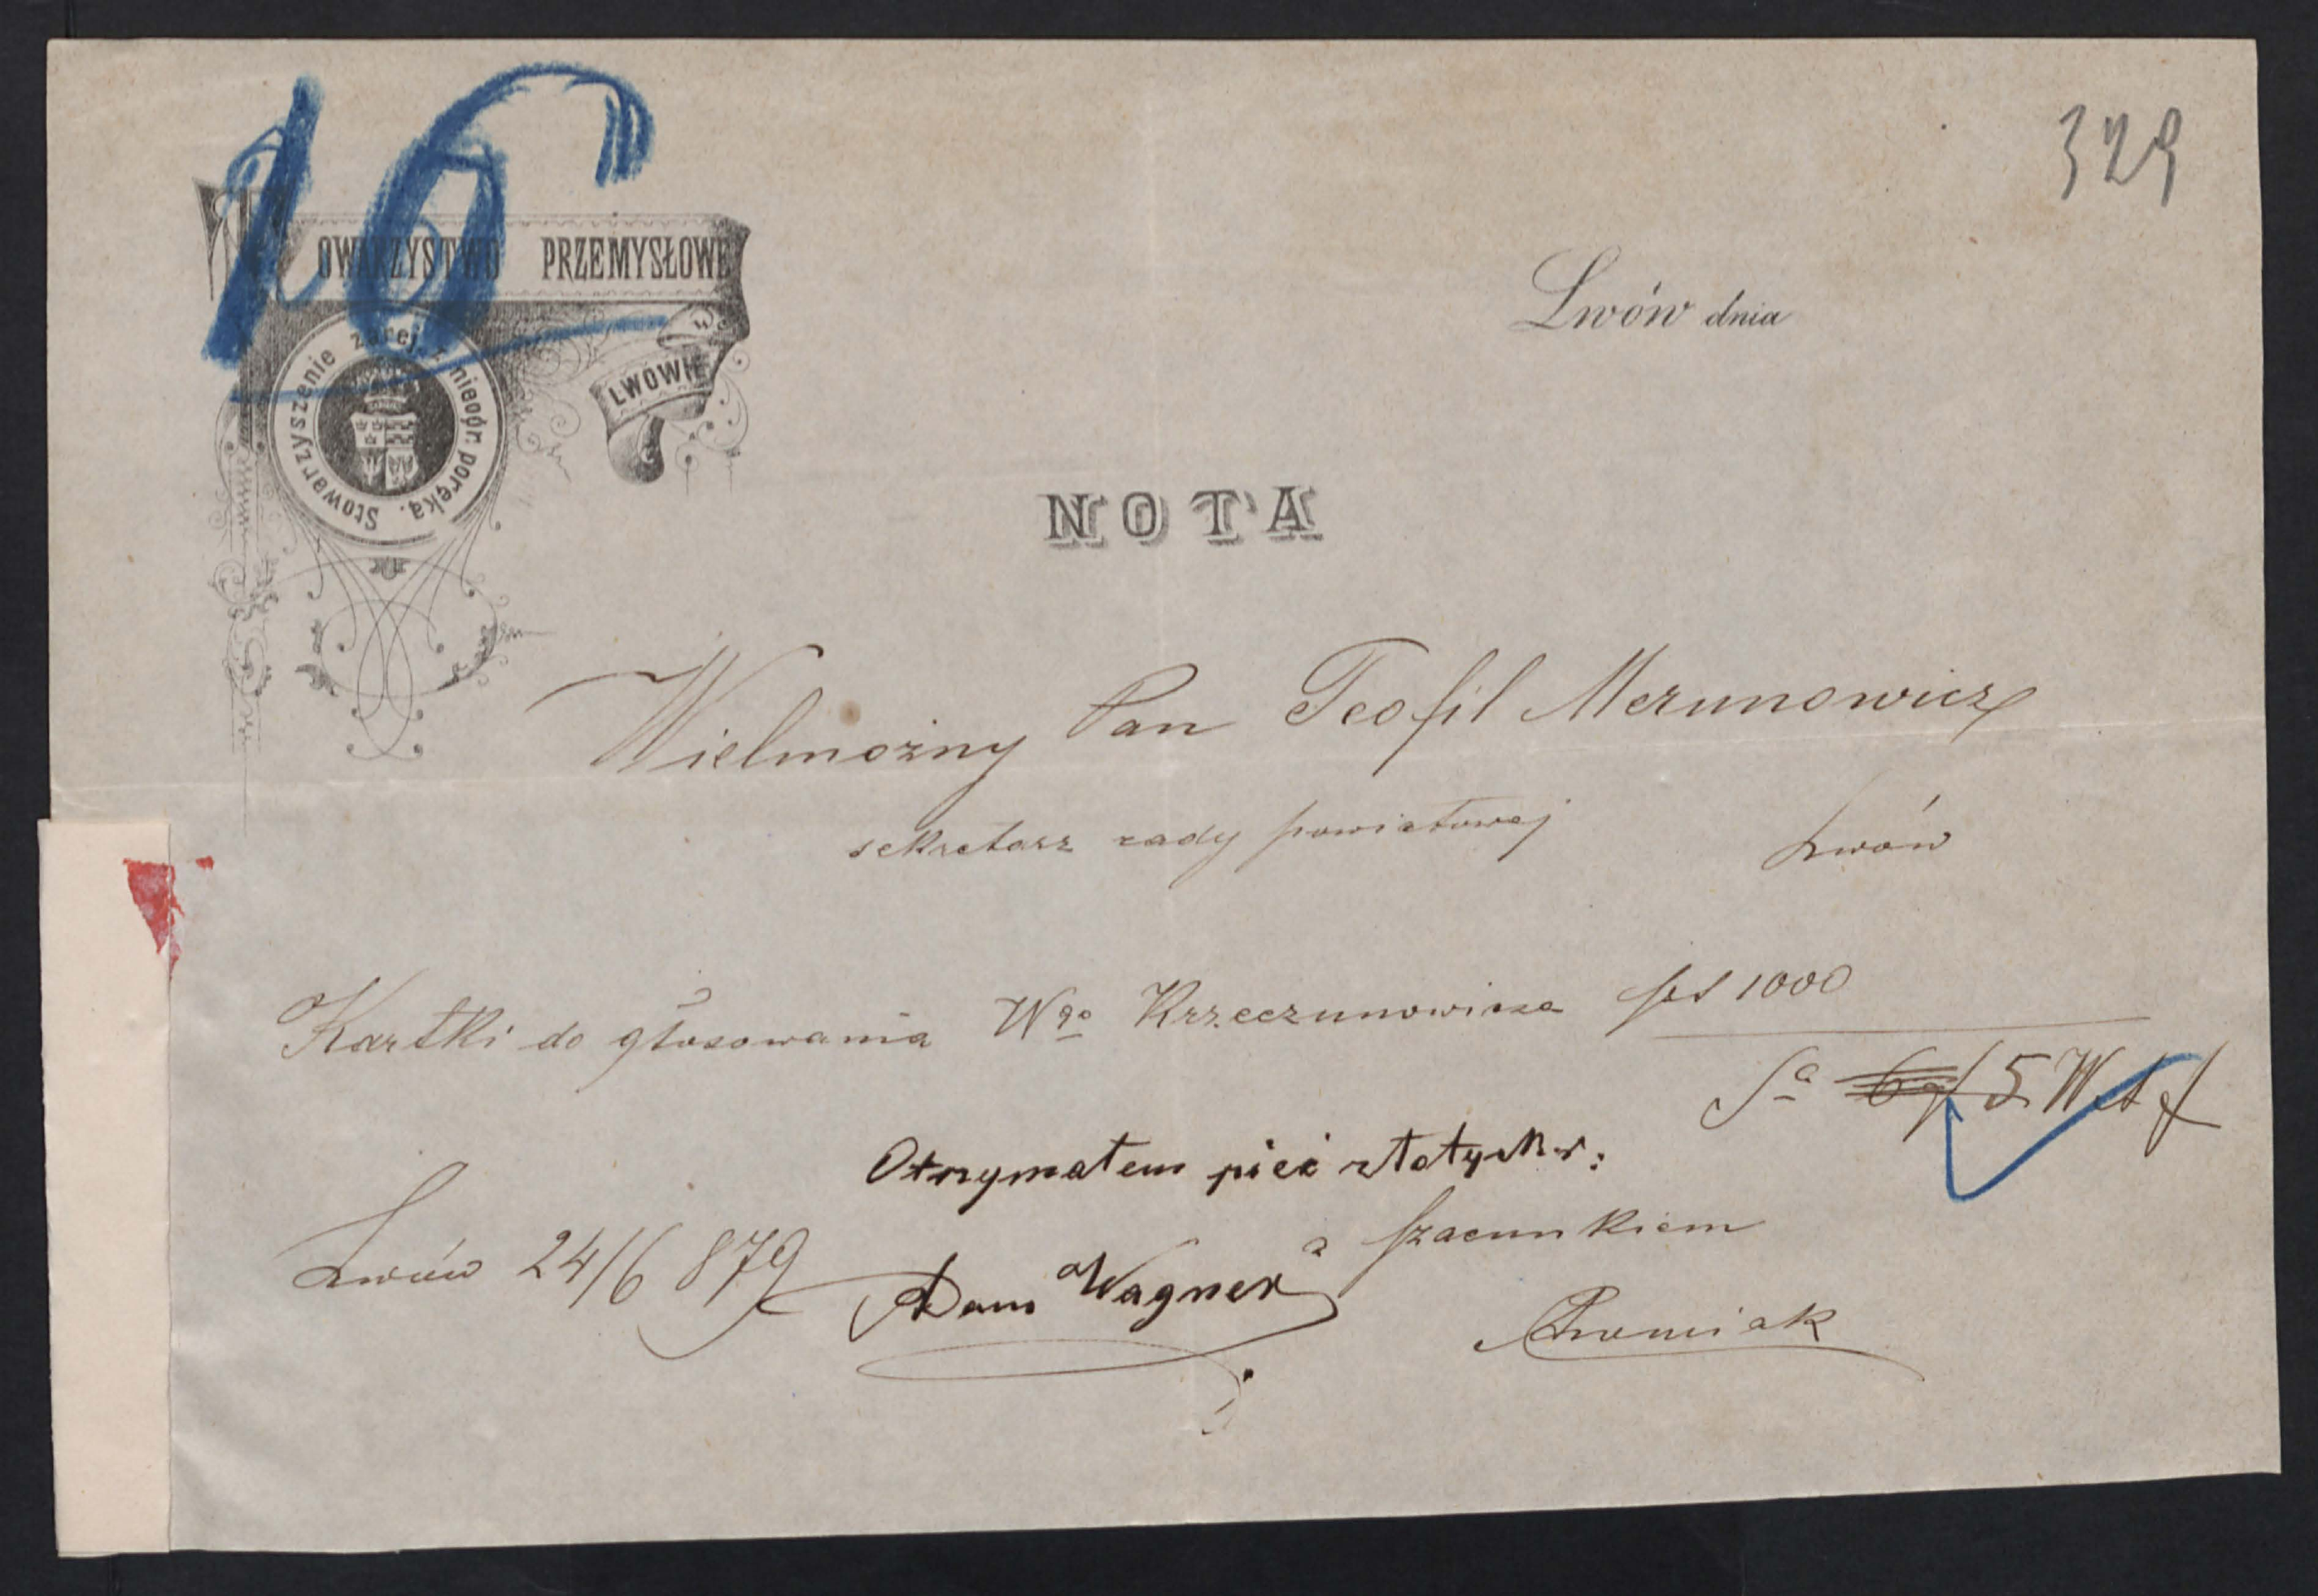 16
329
TOWARZYSTWO PRZEMYSŁOWE
we
LWOWIE
Stowarzyszenie zarej. z nieogr. poręką.
Lwów dnia
NOTA
Wielmożny Pan Teofil Merunowicz
sekretarz rady powiatowej Lwów
Kartki do głosowania Wgo Krzeczunowicza 1000
Sa 5
Otrzymałem pięć złotych
Lwów 24/6 879
z szacunkiem
Adam Wagner